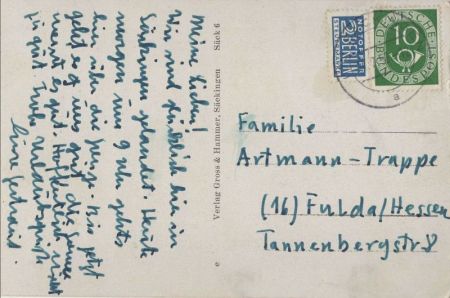 Meine Lieben!
Wir sind glücklich hier in
Säckingen gelandet. Heute
morgen um 9 Uhr gehts
hin über die Grenze. Bis jetzt
geht es uns gut, die Sonne
meint es gut. Hoffentlich nicht
zu gut.
Verlag Gross & Hammer, Säckingen Säck 6
e
NOTOPFER
2 BERLIN
STEUERMARKE
DEUTSCHE
BUNDESPOST
10
a
Familie
Artmann-Trappe
(16) Fulda/Hessen
Tannenbergstr 8